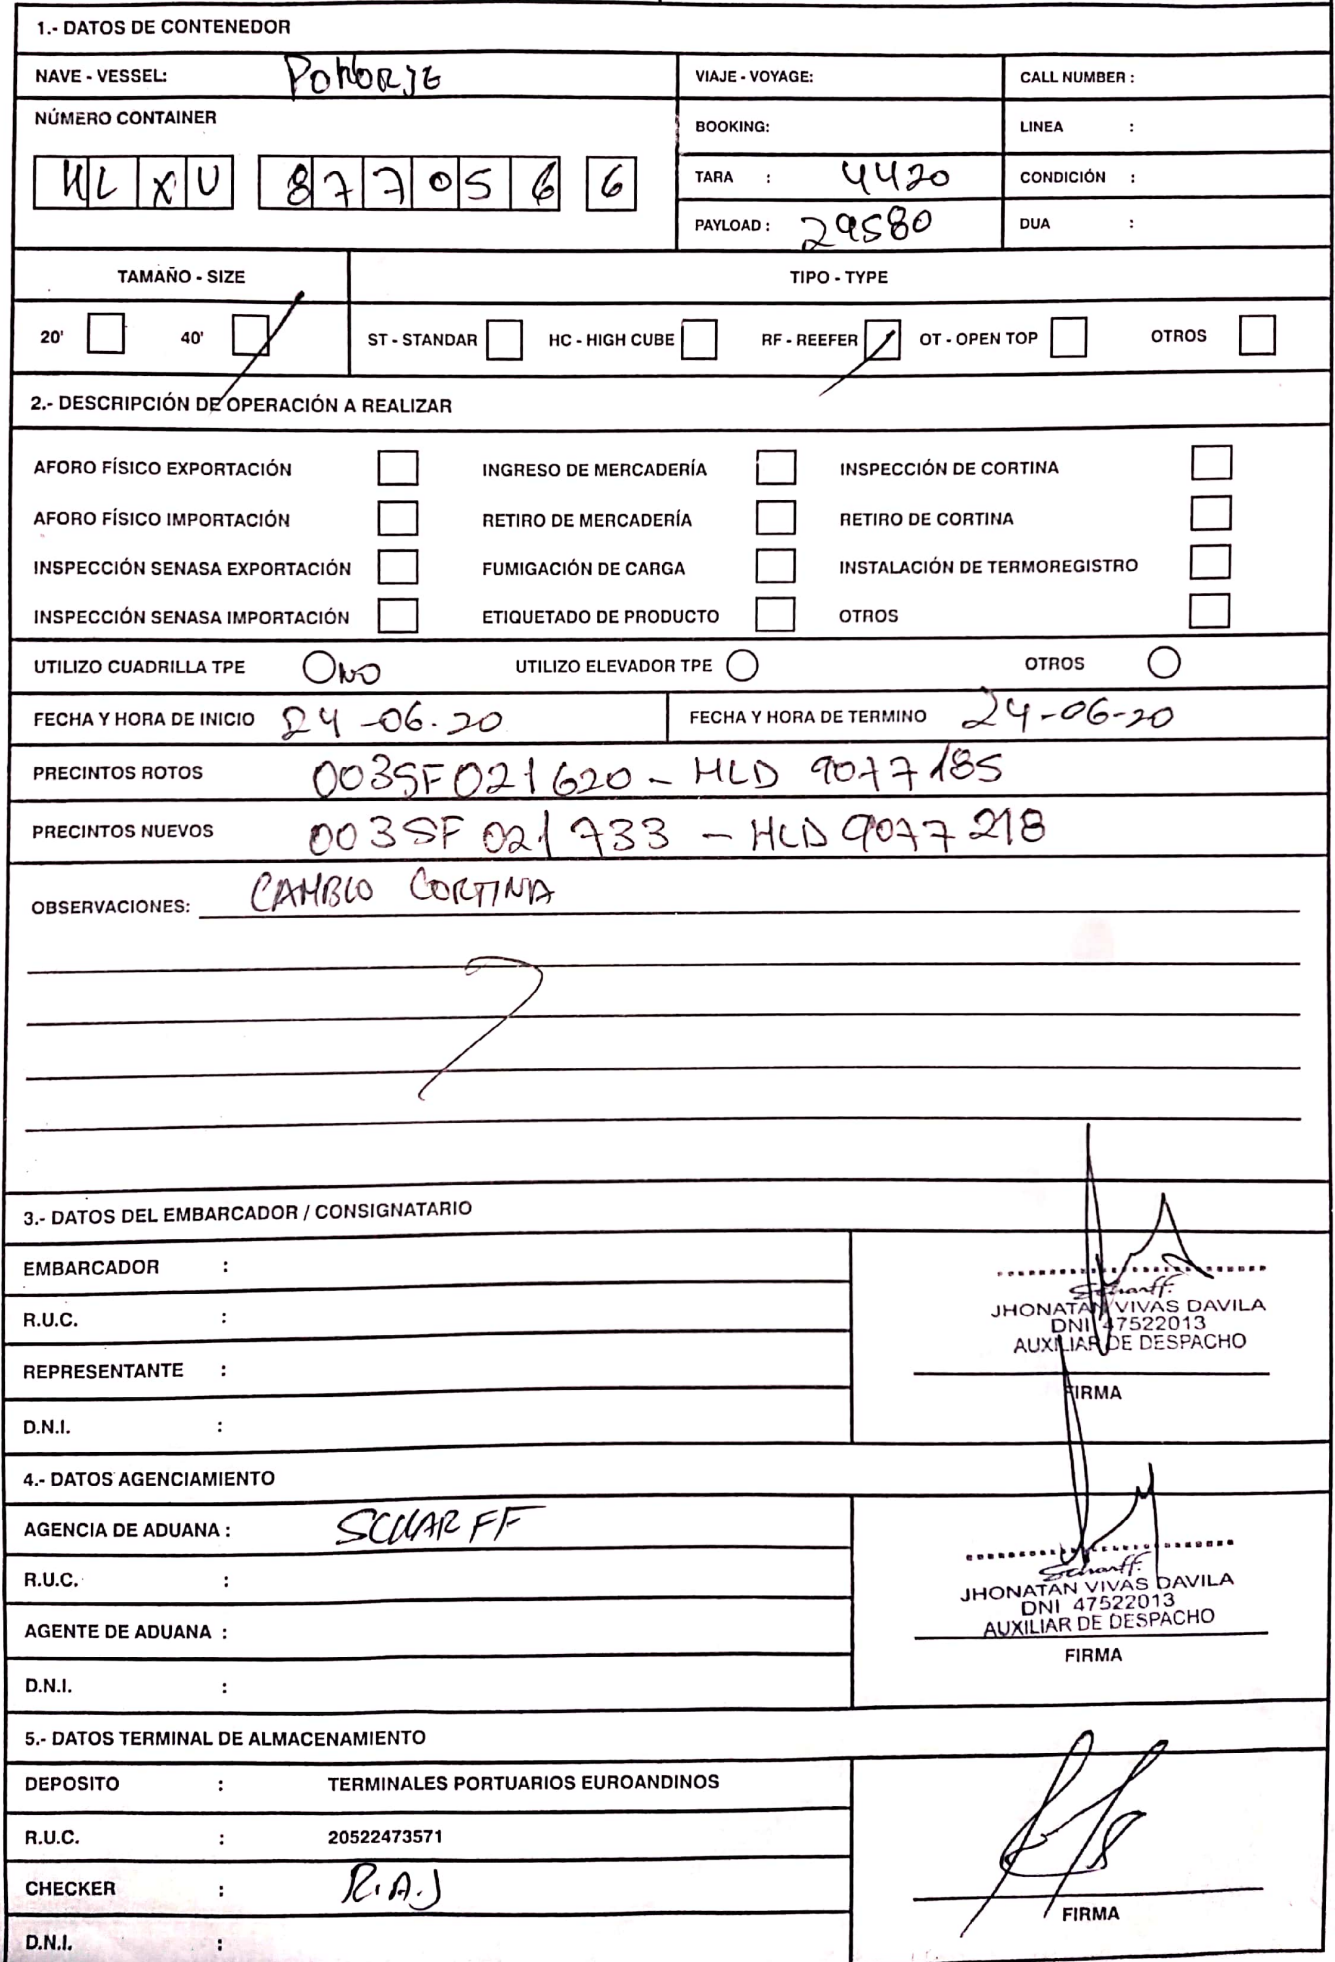 1.- DATOS DE CONTENEDOR
NAVE - VESSEL: POHORJE VIAJE - VOYAGE: CALL NUMBER :
NÚMERO CONTAINER BOOKING: LINEA :
HLXU 877056 6 TARA : 4420 CONDICIÓN :
PAYLOAD : 29580 DUA :
TAMAÑO - SIZE TIPO - TYPE
20' 40' ST - STANDAR HC - HIGH CUBE RF - REEFER OT - OPEN TOP OTROS
2.- DESCRIPCIÓN DE OPERACIÓN A REALIZAR
AFORO FÍSICO EXPORTACIÓN INGRESO DE MERCADERÍA INSPECCIÓN DE CORTINA
AFORO FÍSICO IMPORTACIÓN RETIRO DE MERCADERÍA RETIRO DE CORTINA
INSPECCIÓN SENASA EXPORTACIÓN FUMIGACIÓN DE CARGA INSTALACIÓN DE TERMOREGISTRO
INSPECCIÓN SENASA IMPORTACIÓN ETIQUETADO DE PRODUCTO OTROS
UTILIZO CUADRILLA TPE NO UTILIZO ELEVADOR TPE OTROS
FECHA Y HORA DE INICIO 24-06-20 FECHA Y HORA DE TERMINO 24-06-20
PRECINTOS ROTOS 003SF021620 - HLD 9077185
PRECINTOS NUEVOS 003SF021733 - HLD 9077218
OBSERVACIONES: CAMBIO CORTINA
3.- DATOS DEL EMBARCADOR / CONSIGNATARIO
EMBARCADOR :
R.U.C. :
REPRESENTANTE :
D.N.I. :
Scharff.
JHONATAN VIVAS DAVILA
DNI 47522013
AUXILIAR DE DESPACHO
FIRMA
4.- DATOS AGENCIAMIENTO
AGENCIA DE ADUANA : SCHARFF
R.U.C. :
AGENTE DE ADUANA :
D.N.I. :
Scharff.
JHONATAN VIVAS DAVILA
DNI 47522013
AUXILIAR DE DESPACHO
FIRMA
5.- DATOS TERMINAL DE ALMACENAMIENTO
DEPOSITO : TERMINALES PORTUARIOS EUROANDINOS
R.U.C. : 20522473571
CHECKER : R.A.J
D.N.I. :
FIRMA